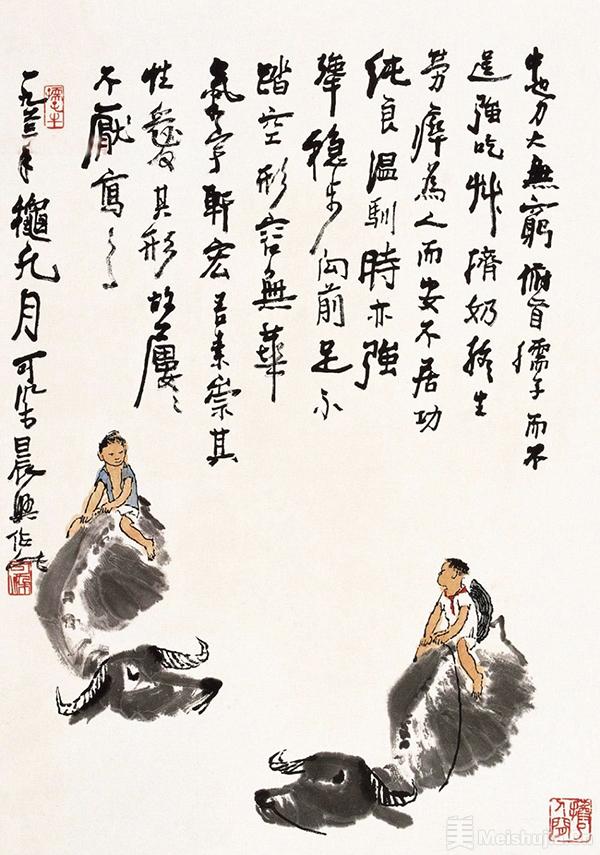 牛也力大無窮俯首孺子而不
逞強吃草擠奶終生
勞瘁為人而安不居功
純良溫馴時亦強
犟穩步向前足不
踏空形容無華
氣宇軒宏吾素崇其
性愛其形故屢〻
不厭寫之
一九六二年龝九月可染晨興作此
美 Meishujia.cn